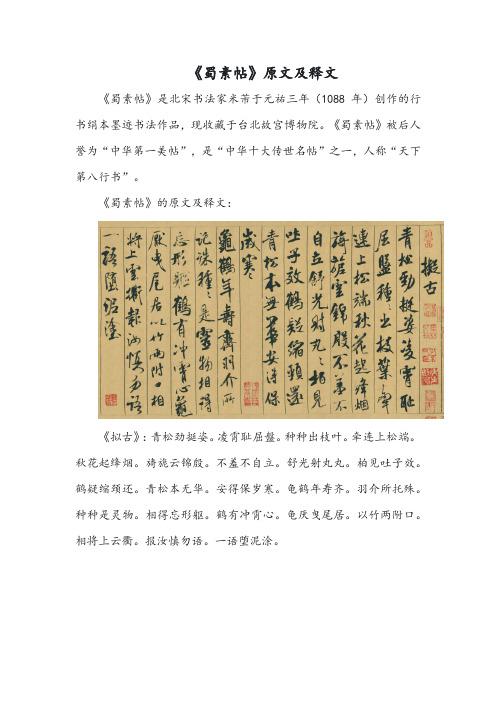 《蜀素帖》原文及释文
《蜀素帖》是北宋书法家米芾于元祐三年（1088 年）创作的行
书绢本墨迹书法作品，现收藏于台北故宫博物院。《蜀素帖》被后人
誉为“中华第一美帖”，是“中华十大传世名帖”之一，人称“天下
第八行书”。
《蜀素帖》的原文及释文：
擬古
青松勁挺姿凌霄恥
屈盤種々出枝葉牽
連上松端秋花起絳烟
旖旎雲錦殷不羞不
自立舒光射丸々柏見
吐子效鶴疑縮頸還
青松本無華安得保
歲寒
龜鶴年壽齊羽介所
託殊種々是靈物相得
忘形軀鶴有冲霄心龜
厭曳尾居以竹兩附口相
將上雲衢報汝慎勿語
一語墮泥塗
《拟古》：青松劲挺姿。凌宵耻屈盤。种种出枝叶。牵连上松端。
秋花起绛烟。旖旎云锦殷。不羞不自立。舒光射丸丸。柏见吐子效。
鹤疑缩颈还。青松本无华。安得保岁寒。龟鹤年寿齐。羽介所托殊。
种种是灵物。相得忘形躯。鹤有冲霄心。龟厌曳尾居。以竹两附口。
相将上云衢。报汝慎勿语。一语堕泥涂。